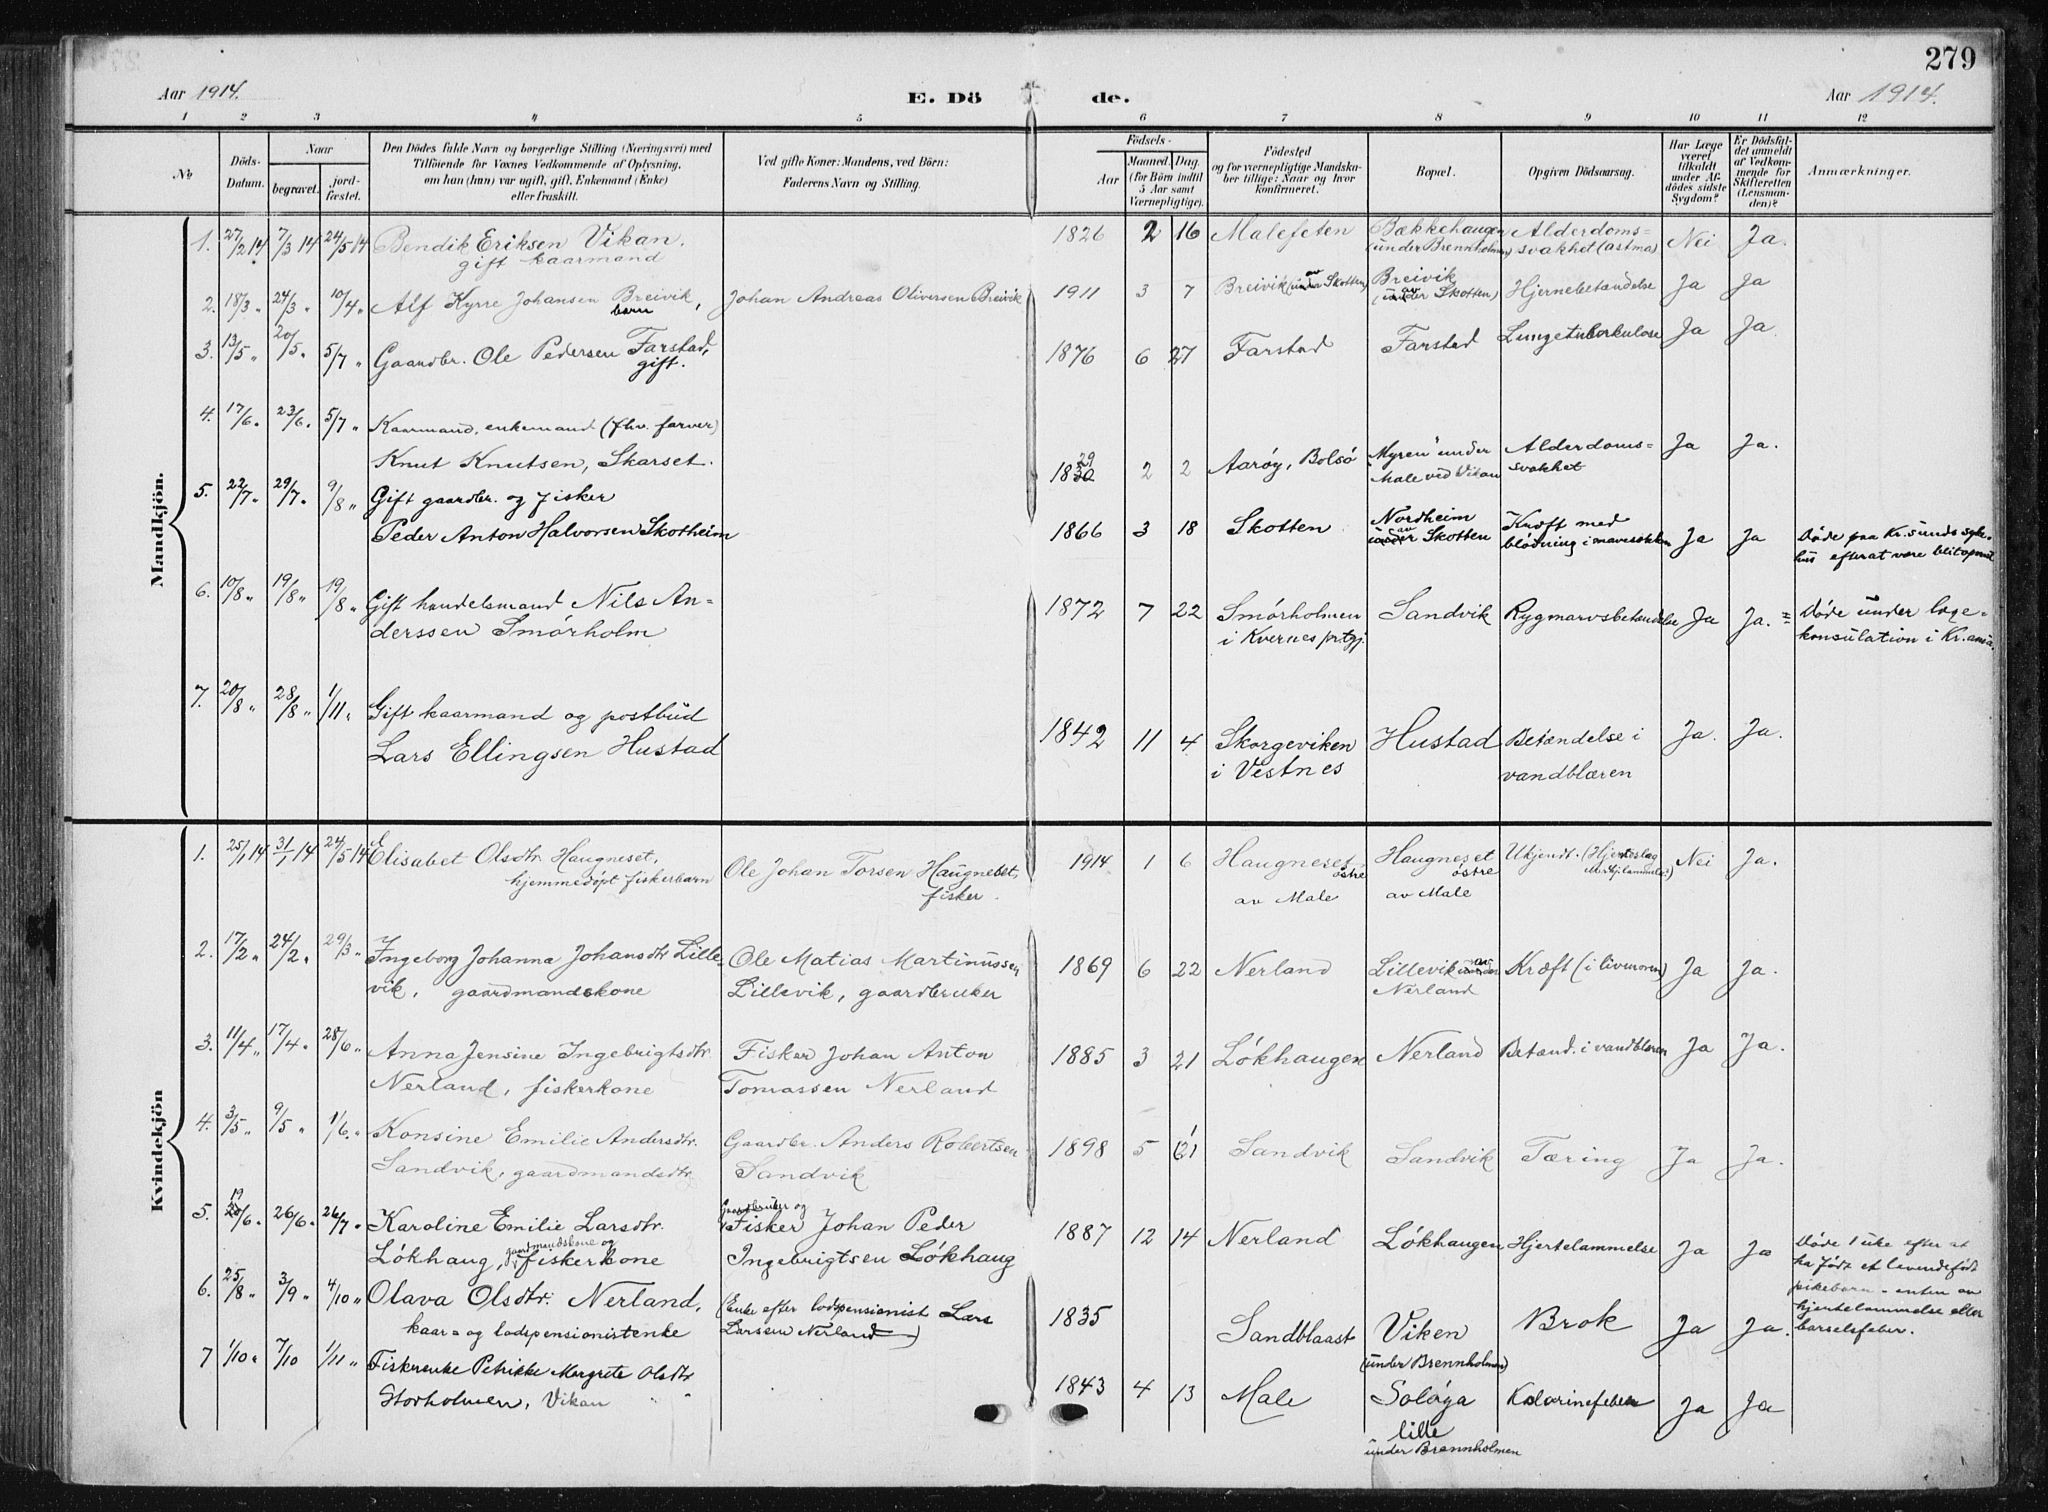 279
Aar 1914.
E. Dö de.
Aar 1914.
1 2 3 4 5 6 7 8 9 10 11 12
No
Döds-Datum.
Naar
begravet.
jord-fæstet.
Den Dödes fulde Navn og borgerlige Stilling (Næringsvei) med
Tilföiende for Voxnes Vedkommende af Oplysning,
om han (hun) var ugift, gift, Enkemand (Enke)
eller fraskilt.
Ved gifte Koner: Mandens, ved Börn:
Faderens Navn og Stilling.
Födsels-
Aar
Maaned. Dag.
(for Börn indtil
5 Aar samt
Værnepligtige).
Födested
og for værnepligtige Mandska-
ber tillige: Naar og hvor
konfirmeret.
Bopæl.
Opgiven Dödsaarsag.
Har Læge
været
tilkaldt
under Af-
dödes sidste
Sygdom?
Er Dödsfal-
det anmeldt
af Vedkom-
mende for
Skifteretten
(Lensman-
den)?
Anmærkninger.
Mandkjön.
1. 27/2 14 7/3 14 24/5 14 Bendik Eriksen Vikan. 1826 2 16 Malefeten Bækkehaugen Alderdoms= Nei Ja.
gift kaarmand (under Brennholmen) svakhet (astma)
2. 18/3 " 24/3 " 10/4 " Alf Kyrre Johansen Breivik, Johan Andreas Oliversen Breivik 1911 3 7 Breivik (under av Skotten) Breivik Hjernebetændelse Ja Ja
barn (under av Skotten)
3. 13/5 " 20/5 " 5/7 " Gaardbr. Ole Pedersen Farstad, 1876 6 27 Farstad Farstad Lungetuberkulose Ja Ja
gift.
4. 17/6 " 23/6 " 5/7 " Kaarmand, enkemand (fhv. farver)
Knut Knutsen, Skarset. 1830 29 2 2 Aarøy, Bolsö Myren" under Alderdoms= Ja Ja.
Male ved Vikan svakhet
5. 22/7 " 29/7 " 9/8 " Gift gaardbr. og fisker
Peder Anton Halvorsen Skotheim 1866 3 18 Skotten Nordheim Kræft med Ja Ja Döde paa Kr.sunds syke-
under av Skotten blödning i mavesækken hus efterat være blit operert
6. 10/8 " 19/8 " 19/8 " Gift handelsmand Nils An= 1872 7 22 Smörholmen Sandvik Rygmarvsbetændelse Ja Ja. = Döde under læge=
derssen Smörholm i Kvernes prtgj. konsulation i Kr.ania.
7. 20/8 " 28/8 " 1/11 " Gift kaarmand og postbud
Lars Ellingsen Hustad 1842 11 4 Skorgeviken Hustad Betændelse i Ja. Ja.
i Vestnes vandblæren
Kvindekjön
1. 25/1 14 31/1 14 24/5 14 Elisabet Olsdtr. Haugneset, Ole Johan Torsen Haugneset, 1914 1 6 Haugneset Haugneset Ukjendt. (Hjerteslag Nei Ja.
hjemmedöpt fiskerbarn fisker. östre östre
av Male av Male
2. 17/2 " 24/2 " 29/3 " Ingeborg Johanna Johansdtr Lille- Ole Matias Martinussen 1869 6 22 Nerland Lillevik under av Kræft (i livmoren) Ja Ja.
vik, gaardmandskone Lillevik, gaardbruker Nerland
3. 11/4 " 17/4 " 28/6 " Anna Jensine Ingebrigtsdtr. Fisker Johan Anton 1885 3 21 Lökhaugen Nerland Betænd. i vandblæren Ja Ja.
Nerland, fiskerkone Tomassen Nerland
4. 3/5 " 9/5 " 1/6 " Konsine Emilie Andersdtr. Gaardbr. Anders Robertsen 1898 5 21 Sandvik Sandvik Tæring Ja Ja.
Sandvik, gaardmandsdtr. Sandvik
5. 19/6 " 26/6 " 26/7 " Karoline Emilie Larsdtr. Gaardbruker og Fisker Johan Peder 1887 12 14 Nerland Lökhaugen Hjertelammelse Ja Ja Döde 1 uke efter at
Lökhaug, gaardmandskone og fiskerkone Ingebrigtsen Lökhaug ha födt et levendefödt
pikebarn - enten av
hjertelammelse eller
barselsfeber.
6. 25/8 " 3/9 " 4/10 " Olava Olsdtr. Nerland, (Enke efter lodspensionist Lars 1835 Sandblaast Viken Brok Ja Ja.
kaar= og lodspensionistenke Larsen Nerland) (under Brennholmen)
7 1/10 " 7/10 1/11 " Fiskerenke Petrikke Margrete Olsdtr 1843 4 13 Male Solöya Ja Ja
Storholmen, Vikan lille
under Brennholmen